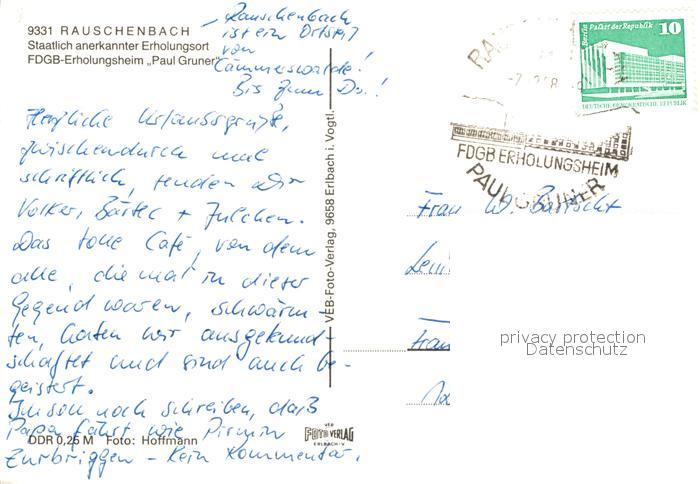 9331 RAUSCHENBACH
Staatlich anerkannter Erholungsort
FDGB-Erholungsheim „Paul Gruner"
Rauschenbach
ist ein Ortsteil
von
Cämmerswalde!
Bis zum Do.!
Herzliche Urlaubsgrüße,
zwischendurch mal
schriftlich, senden Dir
Volker, Bärbel + Julchen.
Das tolle Café, von dem
alle, die mal in dieser
Gegend waren, schwärm-
ten, haben wir ausgekund-
schaftet und sind auch be-
geistert.
noch schreiben, daß
Papa fährt wie Pirmin
Zurbriggen – Kein Kommentar.
DDR 0,25 M Foto: Hoffmann
VEB-Foto-Verlag, 9658 Erlbach i. Vogtl.
VEB
FOTO VERLAG
ERLBACH-V
Berlin Palast der Republik 10
DEUTSCHE DEMOKRATISCHE REPUBLIK
FDGB ERHOLUNGSHEIM
PAUL GRUNER
Frau W.
Frau
privacy protection
Datenschutz